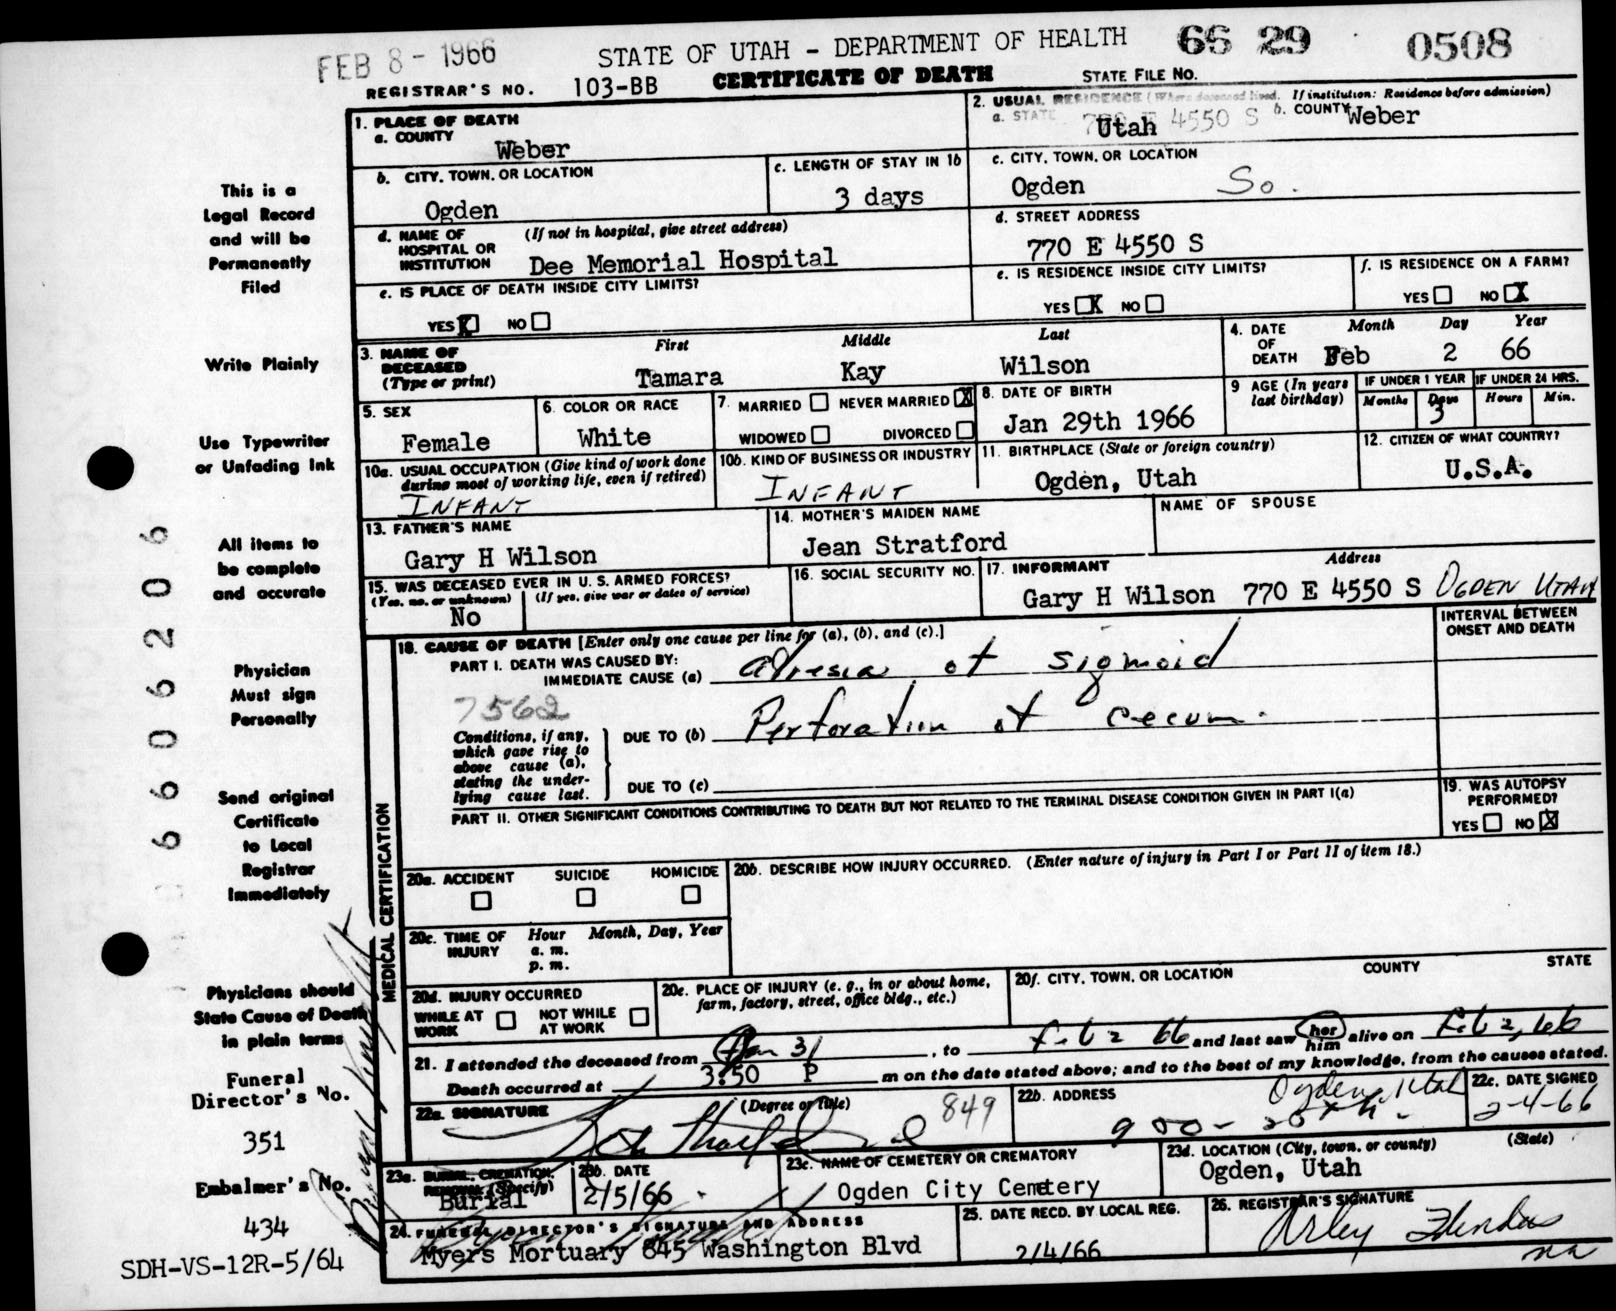 FEB 8 - 1966
STATE OF UTAH - DEPARTMENT OF HEALTH 66 29 0508
REGISTRAR'S NO. 103-BB CERTIFICATE OF DEATH STATE FILE NO.
1. PLACE OF DEATH
a. COUNTY
Weber
2. USUAL RESIDENCE (Where deceased lived. If institution: Residence before admission)
a. STATE Utah 770 E 4550 S b. COUNTY Weber
b. CITY, TOWN, OR LOCATION
Ogden
c. LENGTH OF STAY IN 1b
3 days
c. CITY, TOWN, OR LOCATION
Ogden So.
d. NAME OF HOSPITAL OR INSTITUTION (If not in hospital, give street address)
Dee Memorial Hospital
d. STREET ADDRESS
770 E 4550 S
e. IS PLACE OF DEATH INSIDE CITY LIMITS?
YES X NO
e. IS RESIDENCE INSIDE CITY LIMITS?
YES X NO
f. IS RESIDENCE ON A FARM?
YES NO X
3. NAME OF DECEASED (Type or print)
First Middle Last
Tamara Kay Wilson
4. DATE OF DEATH Month Day Year
Feb 2 66
5. SEX
Female
6. COLOR OR RACE
White
7. MARRIED NEVER MARRIED X
WIDOWED DIVORCED
8. DATE OF BIRTH
Jan 29th 1966
9 AGE (In years last birthday)
IF UNDER 1 YEAR IF UNDER 24 HRS.
Months Days Hours Min.
3
10a. USUAL OCCUPATION (Give kind of work done during most of working life, even if retired)
INFANT
10b. KIND OF BUSINESS OR INDUSTRY
INFANT
11. BIRTHPLACE (State or foreign country)
Ogden, Utah
12. CITIZEN OF WHAT COUNTRY?
U.S.A.
13. FATHER'S NAME
Gary H Wilson
14. MOTHER'S MAIDEN NAME
Jean Stratford
NAME OF SPOUSE
15. WAS DECEASED EVER IN U. S. ARMED FORCES?
(Yes, no, or unknown) (If yes, give war or dates of service)
No
16. SOCIAL SECURITY NO.
17. INFORMANT Address
Gary H Wilson 770 E 4550 S OGDEN UTAH
18. CAUSE OF DEATH [Enter only one cause per line for (a), (b), and (c).]
INTERVAL BETWEEN ONSET AND DEATH
PART I. DEATH WAS CAUSED BY:
IMMEDIATE CAUSE (a) atresia of sigmoid
7562
Conditions, if any, which gave rise to above cause (a), stating the underlying cause last.
DUE TO (b) Perforation of cecum.
DUE TO (c)
PART II. OTHER SIGNIFICANT CONDITIONS CONTRIBUTING TO DEATH BUT NOT RELATED TO THE TERMINAL DISEASE CONDITION GIVEN IN PART I(a)
19. WAS AUTOPSY PERFORMED?
YES NO X
MEDICAL CERTIFICATION
20a. ACCIDENT SUICIDE HOMICIDE
20b. DESCRIBE HOW INJURY OCCURRED. (Enter nature of injury in Part I or Part II of item 18.)
20c. TIME OF INJURY Hour Month, Day, Year
a. m.
p. m.
20d. INJURY OCCURRED
WHILE AT WORK NOT WHILE AT WORK
20e. PLACE OF INJURY (e. g., in or about home, farm, factory, street, office bldg., etc.)
20f. CITY, TOWN, OR LOCATION COUNTY STATE
21. I attended the deceased from Jan 31, to Feb 2 66 and last saw her him alive on Feb 2, 66
Death occurred at 3:50 P m on the date stated above; and to the best of my knowledge, from the causes stated.
22a. SIGNATURE (Degree or title) 849
22b. ADDRESS
Ogden, Utah
22c. DATE SIGNED
2-4-66
23a. BURIAL, CREMATION, REMOVAL (Specify)
Burial
23b. DATE
2/5/66
23c. NAME OF CEMETERY OR CREMATORY
Ogden City Cemetery
23d. LOCATION (City, town, or county) (State)
Ogden, Utah
24. FUNERAL DIRECTOR'S SIGNATURE AND ADDRESS
Myers Mortuary 845 Washington Blvd
25. DATE RECD. BY LOCAL REG.
2/4/66
26. REGISTRAR'S SIGNATURE
This is a
Legal Record
and will be
Permanently
Filed
Write Plainly
Use Typewriter
or Unfading Ink
All items to
be complete
and accurate
Physician
Must sign
Personally
Send original
Certificate
to Local
Registrar
Immediately
Physicians should
State Cause of Death
in plain terms
Funeral
Director's No.
351
Embalmer's No.
434
SDH-VS-12R-5/64
66 06206